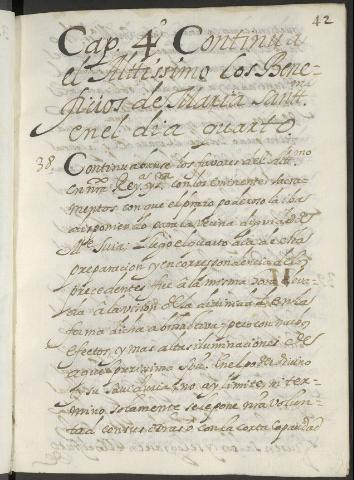 42
Cap. 4º Continua
el Altissimo los Bene-
ficios de Maria Santª
en el dia quarto.
38 Continuabanse los favores del Alt.mo
en nrª Reyna, con los eminentes Sacra-
mentos con que el brazo poderoso la iba
disponiendo para la Divina dignidad de
Mᵉ Suia. Llegó el quarto dia de esta
preparacion y en correspondencia de los
precedentes fue à la misma hora eleva-
da à la vision de la divinidad en la
forma dicha abstractiva; pero con nuebos
efectos, y mas altas iluminaciones
En el poder divino
y su Sabiduria no ay limite, ni ter-
mino solamente se le pone nrª volun-
tad con sus obras, ò con la corta capacidad